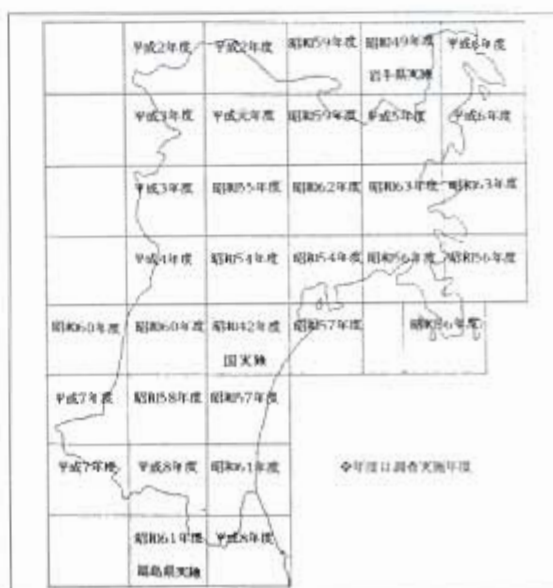 平成2年度 平成2年度 昭和59年度 昭和49年度 平成6年度
岩手県実施
平成3年度 平成元年度 昭和59年度 平成5年度 平成6年度
平成3年度 昭和55年度 昭和62年度 昭和63年度 昭和63年度
平成4年度 昭和54年度 昭和54年度 昭和56年度 昭和56年度
昭和60年度 昭和60年度 昭和42年度 昭和57年度 昭和56年度
国実施
平成7年度 昭和58年度 昭和57年度
平成7年度 平成8年度 昭和61年度 年度は調査実施年度
昭和61年度 平成8年度
福島県実施